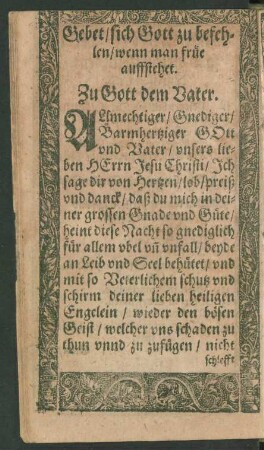 Gebet/ sich Gott zu befeh-
len/ wenn man früe
auffstehet.
Zu Gott dem Vater.
ALlmechtiger/ Gnediger/
Barmhertziger GOtt
vnd Vater/ vnsers lie-
ben HErrn Jesu Christi/ Ich
sage dir von Hertzen/ lob/ preiß
vnd danck/ daß du mich in dei-
ner grossen Gnade vnd Güte/
heint diese Nacht so gnediglich
für allem vbel vñ vnfall/ beyde
an Leib vnd Seel behütet/ vnd
mit so Veterlichem schutz vnd
schirm deiner lieben heiligen
Engelein/ wieder den bösen
Geist/ welcher vns schaden zu
thun vnnd zu zufügen/ nicht
schlefft